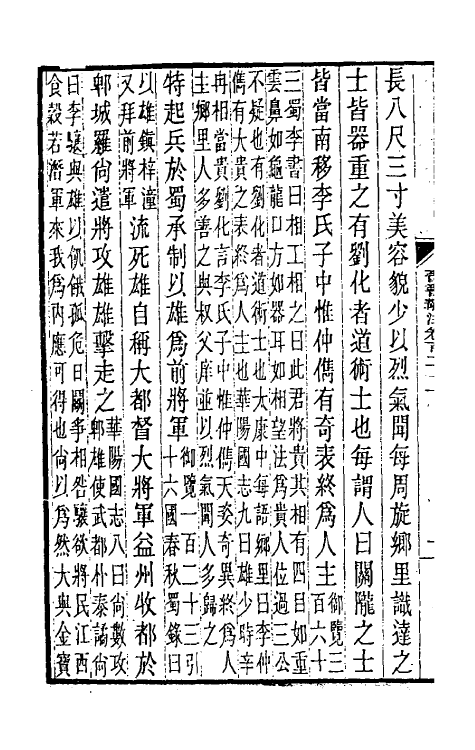 長八尺三寸美容貌少以烈氣聞每周旋鄉里識達之
士皆器重之有劉化者道術士也每謂人曰關隴之士
皆當南移李氏子中惟仲儁有奇表終爲人主
御覽三
百六十
三蜀李書曰相工相之曰此君將貴其相有四目如重
雲鼻如龜龍口方如器耳如相望法爲貴人位過三公
不疑也有劉化者道術士也太康中每語鄉里曰李仲
儁有大貴之表終爲人主也華陽國志九曰雄少時辛
冉相當貴劉化言李氏子中惟仲儁天姿奇異終爲人
主鄉里人多善之與叔父庠並以烈氣聞人多歸之
特起兵於蜀承制以雄爲前將軍
御覽一百二十三引
十六國春秋蜀錄曰
以雄鎮梓潼
又拜前將軍
流死雄自稱大都督大將軍益州牧都於
郫城羅尚遣將攻雄雄擊走之
華陽國志八曰尚數攻
郫雄使武都朴泰譎尚
曰李驤與雄以飢餓孤危日鬬爭相咎驤欲將民江西
食穀若潛軍來我爲內應可得也尚以爲然大與金寶